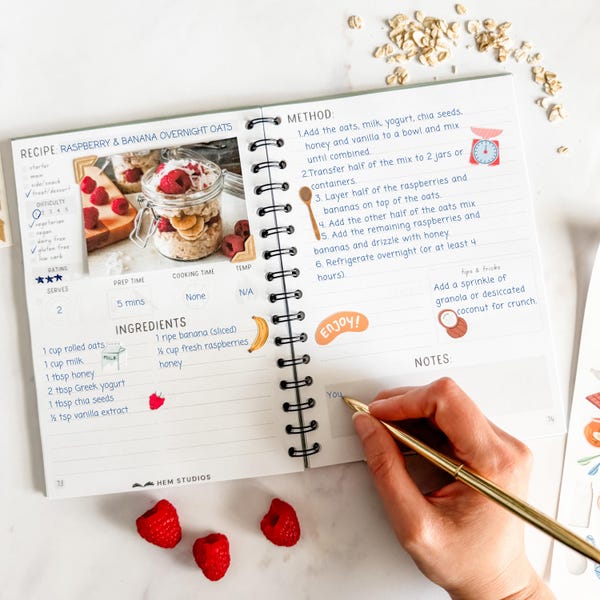 RECIPE: RASPBERRY & BANANA OVERNIGHT OATS
starter
main
side/snack
treat/dessert
DIFFICULTY
1 2 3 4 5
vegetarian
vegan
dairy free
gluten free
low carb
RATING
SERVES
2
PREP TIME
5 mins
COOKING TIME
None
TEMP
N/A
INGREDIENTS
1 cup rolled oats
1 cup milk
1 tbsp honey
2 tbsp Greek yogurt
1 tbsp chia seeds
½ tsp vanilla extract
MILK
1 ripe banana (sliced)
½ cup fresh raspberries
honey
73
HEM STUDIOS
METHOD:
1.Add the oats, milk, yogurt, chia seeds,
honey and vanilla to a bowl and mix
until combined.
2.Transfer half of the mix to 2 jars or
containers.
3. Layer half of the raspberries and
bananas on top of the oats.
4. Add the other half of the oats mix
5. Add the remaining raspberries and
bananas and drizzle with honey.
6. Refrigerate overnight (or at least 4
hours)
tips & tricks
Add a sprinkle of
granola or desiccated
coconut for crunch.
ENJOY!
NOTES:
You
74